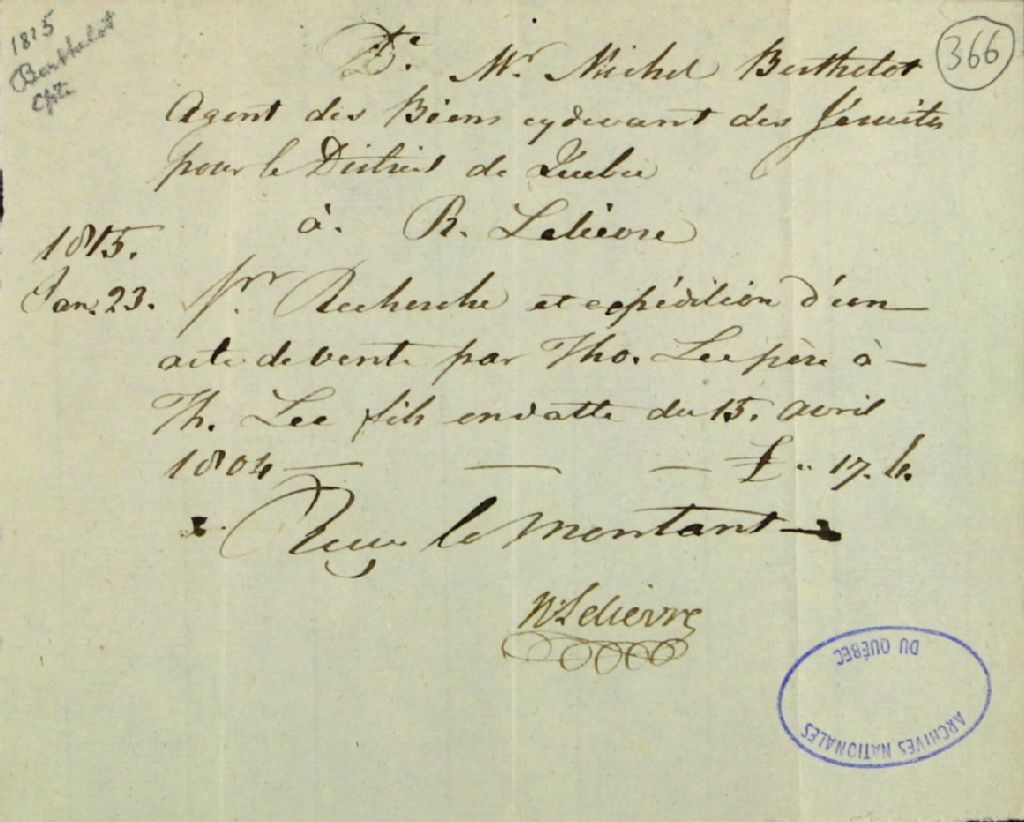 1815
Berthelot
366
Dt. Mr. Michel Berthelot
Agent des Biens cydevant des Jésuites
pour le District de Québec
à. R. Lelièvre
1815.
Jan. 23. Pr. Recherche et expédition d'un
acte de vente par Tho. Lee père à
Th. Lee fils en datte du 15. avril
1804 — — — £ .. 17. 6.
Reçu le montant
R. Lelievre
ARCHIVES NATIONALES
DU QUÉBEC